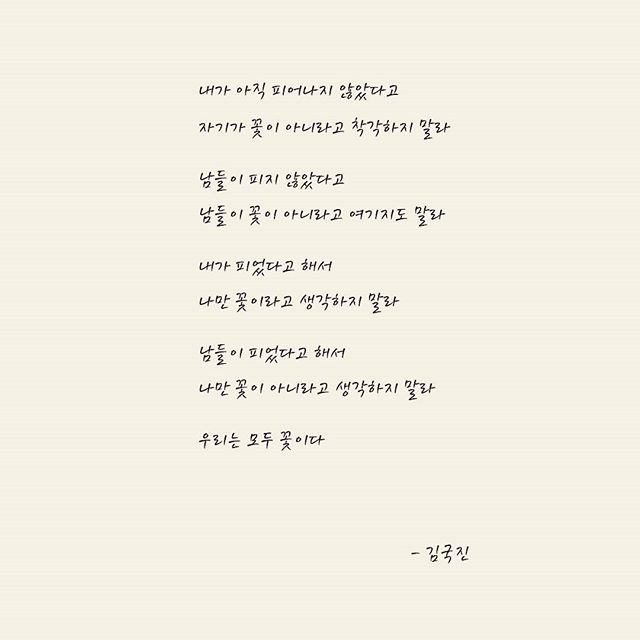 내가 아직 피어나지 않았다고
자기가 꽃이 아니라고 착각하지 말라
남들이 피지 않았다고
남들이 꽃이 아니라고 여기지도 말라
내가 피었다고 해서
나만 꽃이라고 생각하지 말라
남들이 피었다고 해서
나만 꽃이 아니라고 생각하지 말라
우리는 모두 꽃이다
- 김국진